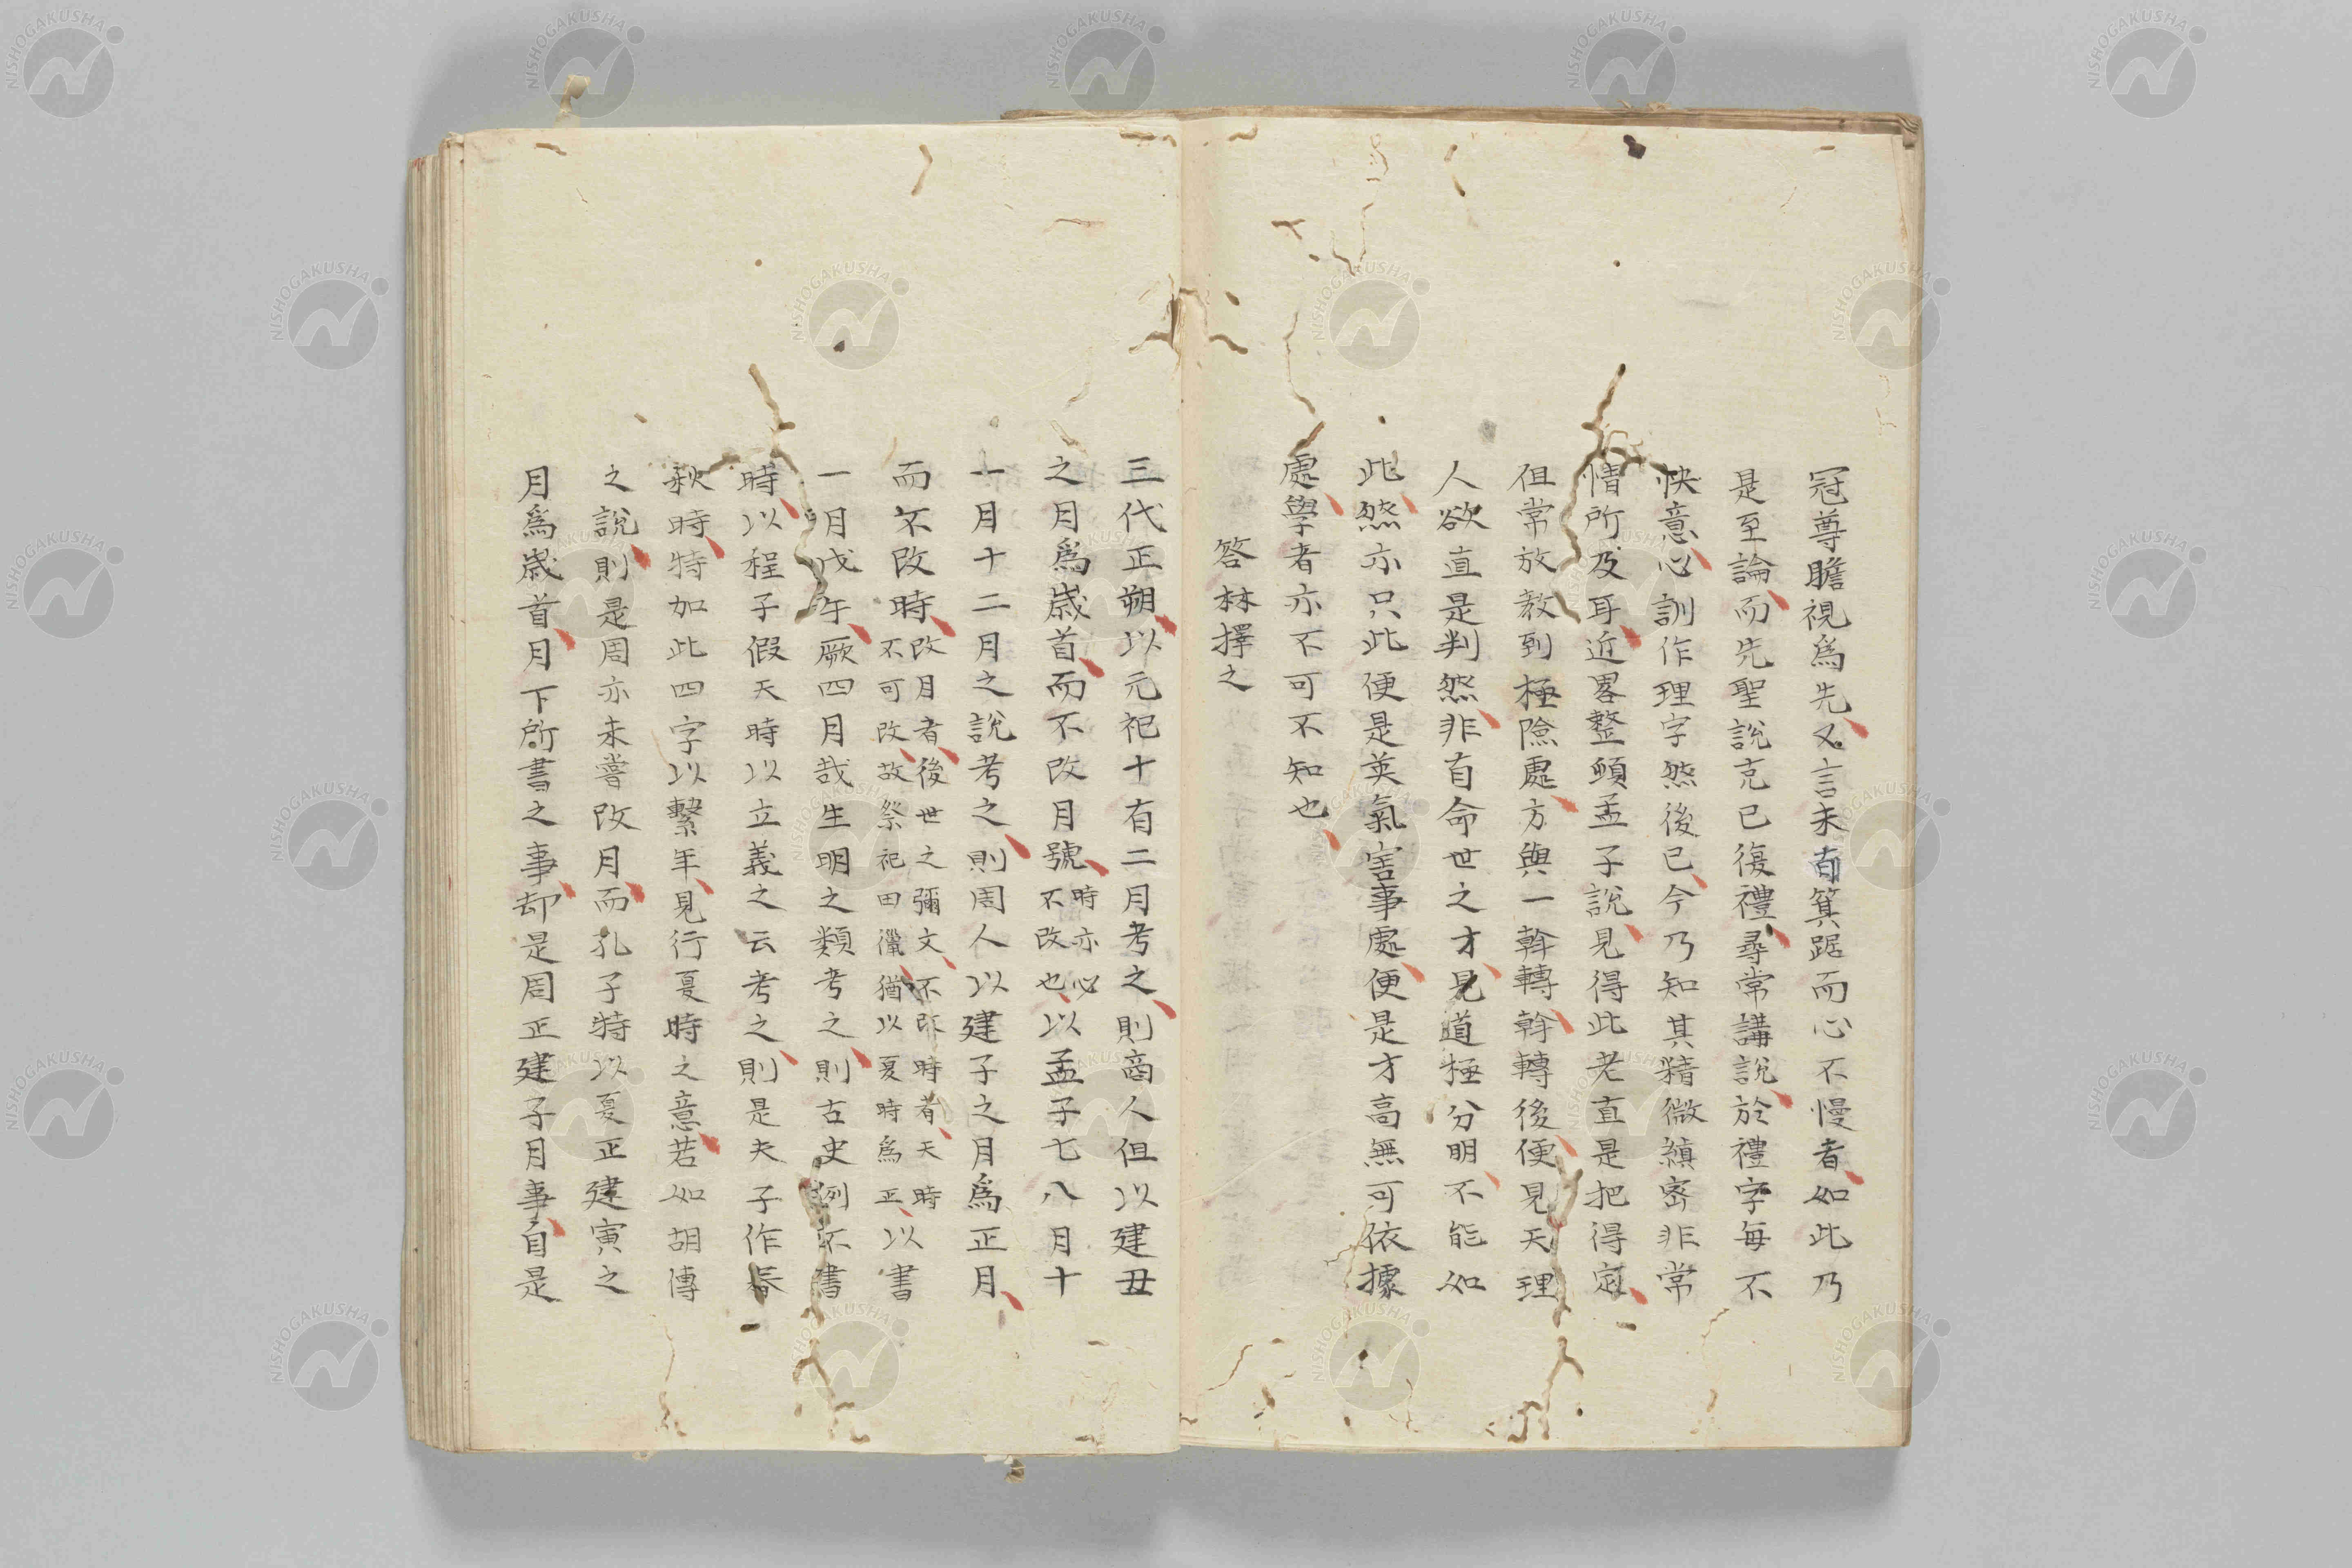 冠尊瞻視爲先又言未有箕踞而心不慢者如此乃
是至論而先聖說克己復禮尋常講說於禮字每不
快意必訓作理字然後已今乃知其精微縝密非常
情所及耳近畧整頓孟子說見得此老直是把得定
但常放教到極險處方與一斡轉斡轉後便見天理
人欲直是判然非有命世之才見道極分明不能如
此然亦只此便是英氣害事處便是才高無可依據
處學者亦不可不知也
答林擇之
三代正朔以元祀十有二月考之則商人但以建丑
之月爲歲首而不改月號時亦必不改也以孟子七八月十
一月十二月之說考之則周人以建子之月爲正月
而不改時改月者後世之彌文不改時者天時不可改故祭祀田獵猶以夏時爲正以書
一月戊午厥四月哉生明之類考之則古史例不書
時以程子假天時以立義之云考之則是夫子作春
秋時特加此四字以繫年見行夏時之意若如胡傳
之說則是周亦未嘗改月而孔子特以夏正建寅之
月爲歲首月下所書之事却是周正建子月事自是